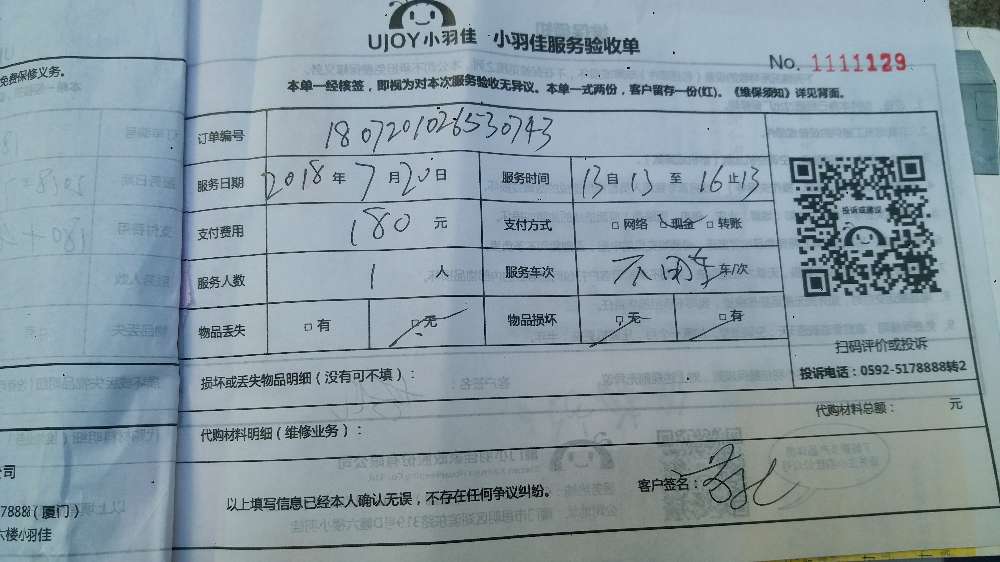 UJOY小羽佳 小羽佳服务验收单
No. 1111129
本单一经核签，即视为对本次服务验收无异议。本单一式两份，客户留存一份(红)。《维保须知》详见背面。
订单编号 1807201026530743
服务日期 2018年7月20日 服务时间 13自13至16止13
支付费用 180 元 支付方式 □网络 □现金 □转账
服务人数 1 人 服务车次 不用车 车/次
物品丢失 □有 □无 物品损坏 □无 □有
投诉或建议
扫码评价或投诉
投诉电话：0592-5178888转2
损坏或丢失物品明细（没有可不填）：
代购材料明细（维修业务）： 代购材料总额： 元
以上填写信息已经本人确认无误，不存在任何争议纠纷。 客户签名：
免费保修义务。
公司
7888（厦门）
六楼小羽佳